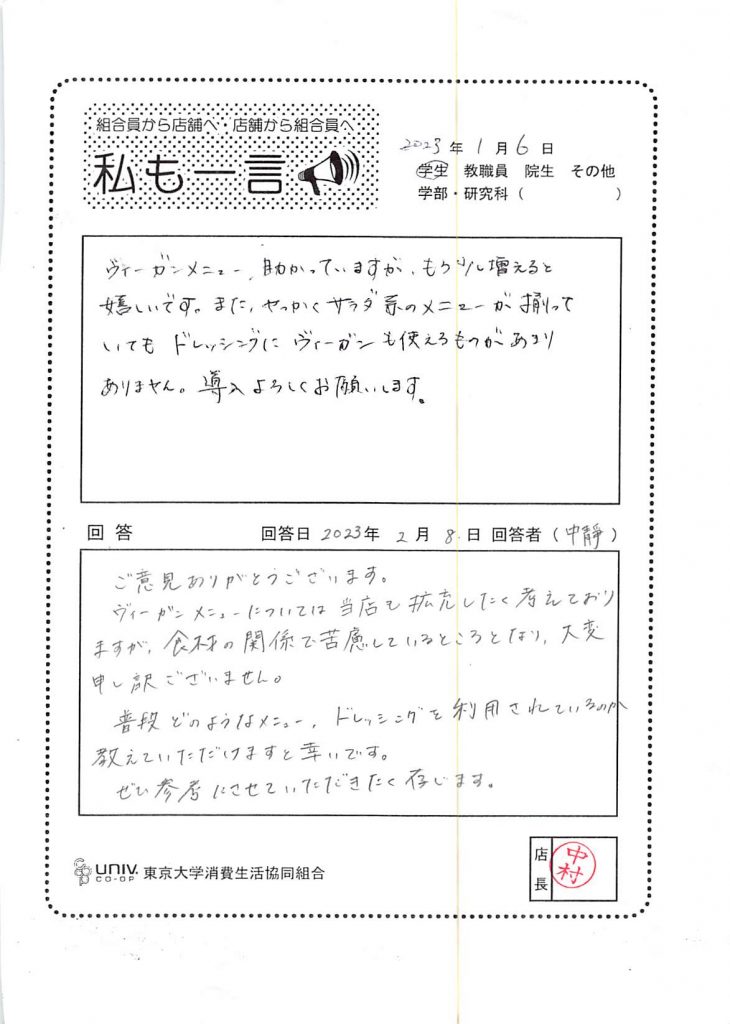 組合員から店舗へ・店舗から組合員へ
私も一言
2023年1月6日
学生 教職員 院生 その他
学部・研究科（　　　　　　　）
ヴィーガンメニュー、助かっていますが、もう少し増えると
嬉しいです。また、せっかくサラダ系のメニューが揃って
いても ドレッシングに ヴィーガンも使えるものがあまり
ありません。導入よろしくお願いします。
回答 回答日 2023年2月8日 回答者（中静）
ご意見ありがとうございます。
ヴィーガンメニューについては当店も拡充したく考えており
ますが、食材の関係で苦慮しているところとなり、大変
申し訳ございません。
普段どのようなメニュー、ドレッシングを利用されているのか
教えていただけますと幸いです。
ぜひ参考にさせていただきたく存じます。
UNIV. CO-OP 東京大学消費生活協同組合
店長 中村